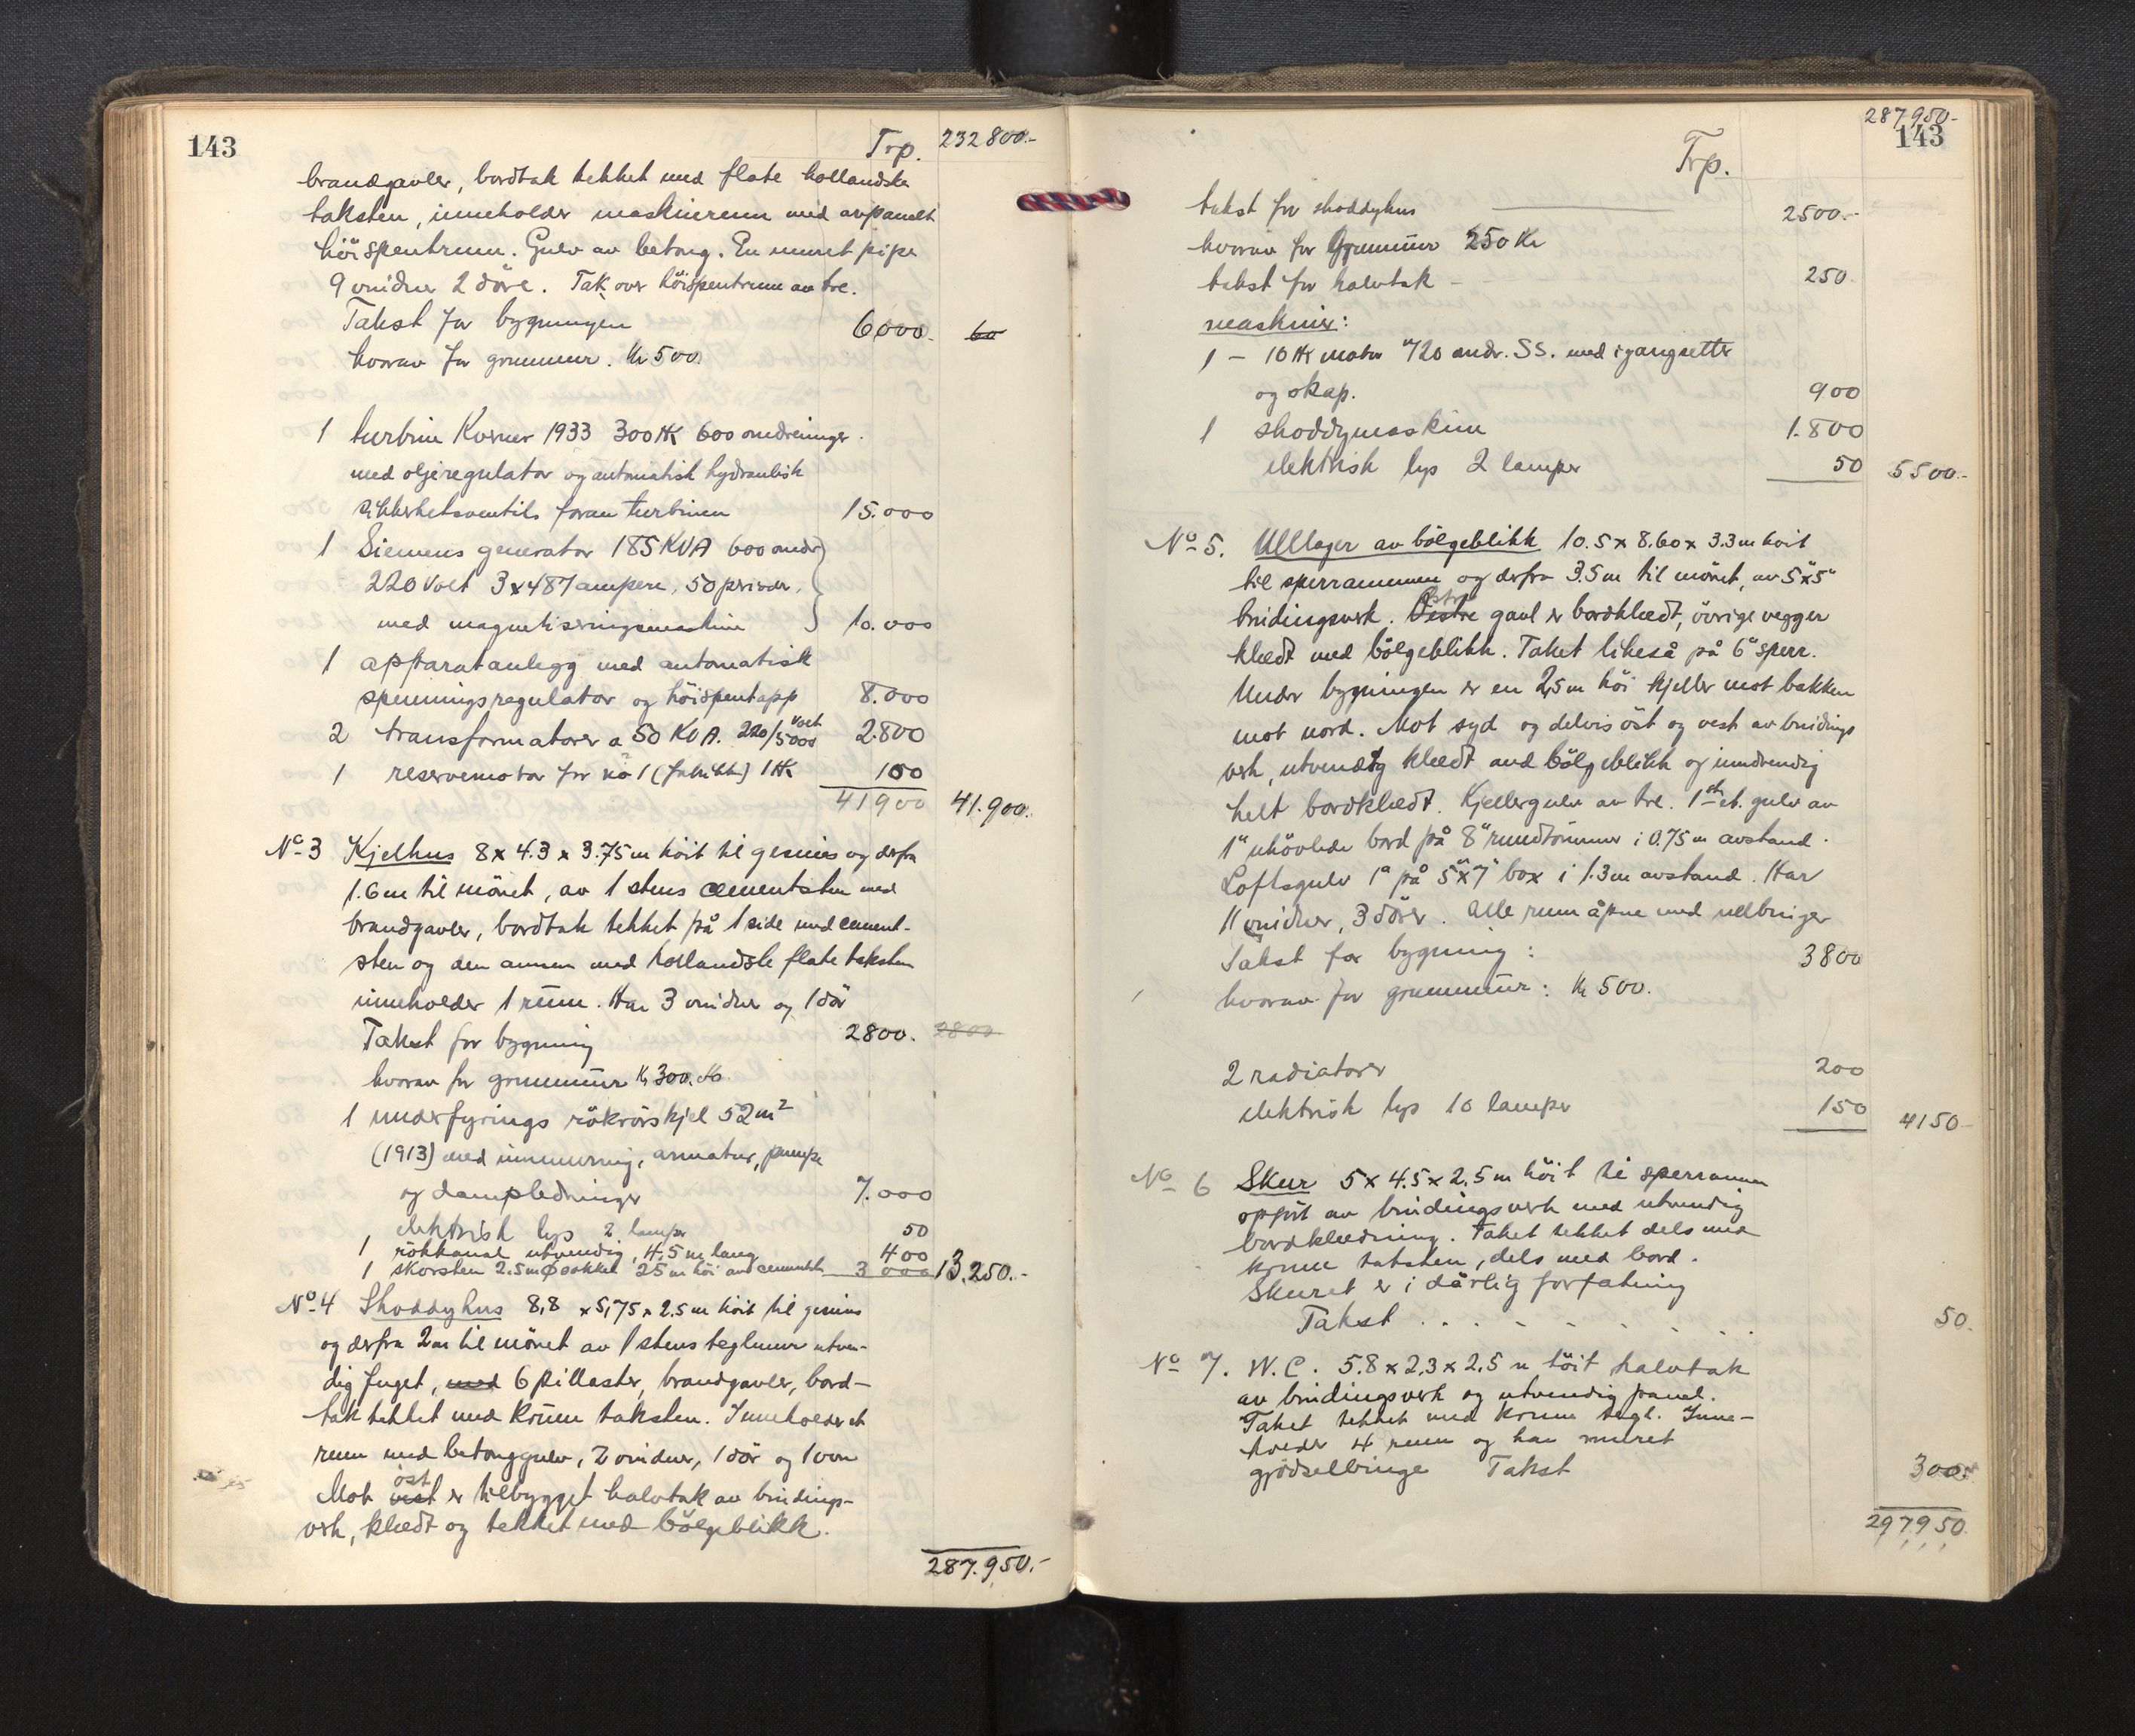 143
Trp. 232800.-
brandgavler, bordtak tekket med flate hollandske
taksten, inneholder maskinerum med avpanelt
höispentrum. Gulv av betong. En muret pipe
9 vinduer 2 döre. Tak over höispentrum av tre.
Takst for bygningen 6000.- 60
hvorav for grunnmur. Kr 500.
1 turbin Kverner 1933 300 HK 600 omdreininger.
med oljeregulator og automatisk hydraulisk
sikkerhetsventil foran turbinen 15.000
1 Siemens generator 185 KVA 600 omdr
220 Volt 3x487 ampere, 50 perioder,
med magnetiseringsmaskin 10.000
1 apparatanlegg med automatisk
spenningsregulator og höispentapp 8.000
2 transformatorer a 50 KVA. 220/5000 volt 2.800
1 reservemotor for no 1 (fabrikk) 1 HK 100
41900 41.900.
No 3 Kjelhus 8 x 4.3 x 3.75 m höit til gesims og derfra
1.6 m til mönet, av 1 stens cementsten med
brandgavler, bordtak tekket på 1 side med cement-
sten og den annen med hollandske flate taksten
inneholder 1 rum. Har 3 vinduer og 1 dör
Takst for bygning 2800. 2800
hvorav for grunnmur Kr 300.
1 underfyrings rökrörskjel 52 m2
(1913) med innmuring, armatur, pumpe
og dampledninger 7.000
elektrisk lys 2 lamper 50
1 rökkanal utvendig, 4,5 m lang 400
1 skorsten 2.5 m Ø sokkel 25 m höi av cementst. 3000 13.250.-
No 4 Shoddyhus 8,8 x 5,75 x 2.5 m höit til gesims
og derfra 2 m til mönet av 1 stens teglmur utven-
dig fuget, med 6 pillaster, brandgavler, bord-
tak tekket med krum taksten. Inneholder et
rum med betonggulv, 2 vinduer, 1 dör og 1 ovn
Mot vest öst er tilbygget halvtak av bindings-
verk, kledt og tekket med bölgeblikk.
287.950.-
287950-
143
Trp.
takst for shoddyhus 2500.-
hvorav for Grunnmur 250 Kr
takst for halvtak - 250.
maskiner:
1 - 10 HK motor 720 omdr. SS. med igangsetter
og skap. 900
1 shoddymaskin 1.800
elektrisk lys 2 lamper 50 5500.-
No 5. Ulllager av bölgeblikk 10.5 x 8.60 x 3.3 m höit
til sperrammen og derfra 3.5 m til mönet, av 5"x5"
bindingsverk. Vestre Østre gavl er bordkledt, övrige vegger
kledt med bölgeblikk. Taket likeså på 6" sperr.
Under bygningen er en 2,5 m höi kjeller mot bakken
mot nord. Mot syd og delvis öst og vest av bindings
verk, utvendig kledt med bölgeblikk og innvendig
helt bordkledt. Kjellergulv av tre. 1st et. gulv av
1" uhövlede bord på 8" rundtömmer i 0.75 m avstand.
Loftsgulv 1" på 5"x7" box i 1.3 m avstand. Har
11 vinduer, 3 dörer. Alle rum åpne med ullbinger
Takst for bygning: 3800
hvorav for grunnmur: Kr 500.
2 radiatorer 200
elektrisk lys 10 lamper 150 4150-
No 6 Skur 5 x 4.5 x 2.5 m höit til sperrammen
opfört av bindingsverk med utvendig
bordkledning. Taket tekket dels med
krum taksten, dels med bord.
Skuret er i dårlig forfatning
Takst . . . . . . . . 50.
No 7. W.C. 5.8 x 2,3 x 2,5 m höit halvtak
av bindingsverk og utvendig panel.
Taket tekket med krum tegl. Inne-
holder 4 rum og har muret
gjödselbinge Takst 300.-
297950.